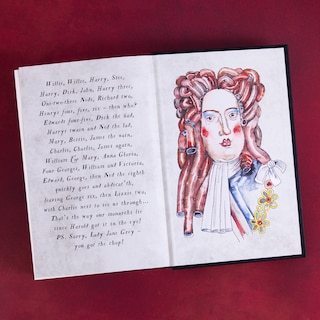 Willie, Willie, Harry, Stee,
Harry, Dick, John, Harry three,
One-two-three Neds, Richard two,
Henrys four, five, six - then who?
Edwards four-five, Dick the bad,
Harrys twain and Ned the lad,
Mary, Bessie, James the vain,
Charlie, Charlie, James again,
William & Mary, Anna Gloria,
Four Georges, William and Victoria,
Edward, George, then Ned the eighth
quickly goes and abdicat'th,
leaving George six, then Lizzie two,
with Charlie next to see us through...
That's the way our monarchs lie
since Harold got it in the eye!
PS. Sorry, Lady Jane Grey -
you got the chop!